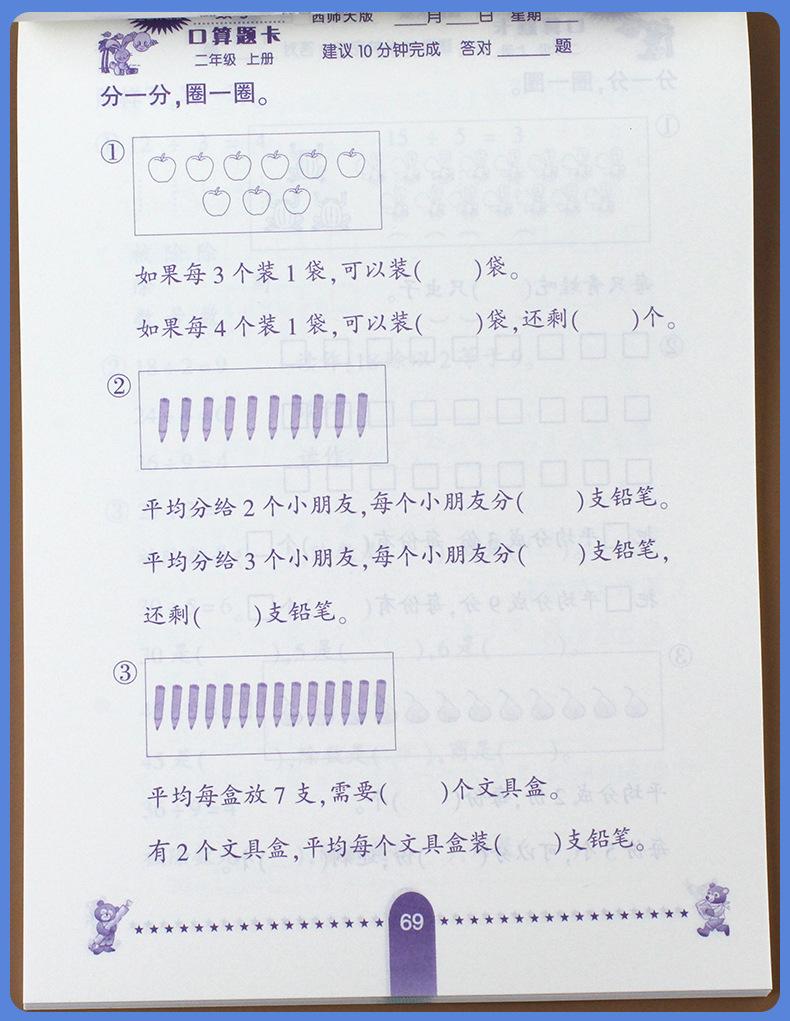 西师大版 ___月___日 星期___
口算题卡
二年级 上册
建议10分钟完成 答对______题
分一分,圈一圈。
①
如果每3个装1袋,可以装( )袋。
如果每4个装1袋,可以装( )袋,还剩( )个。
②
平均分给2个小朋友,每个小朋友分( )支铅笔。
平均分给3个小朋友,每个小朋友分( )支铅笔,
还剩( )支铅笔。
③
平均每盒放7支,需要( )个文具盒。
有2个文具盒,平均每个文具盒装( )支铅笔。
69